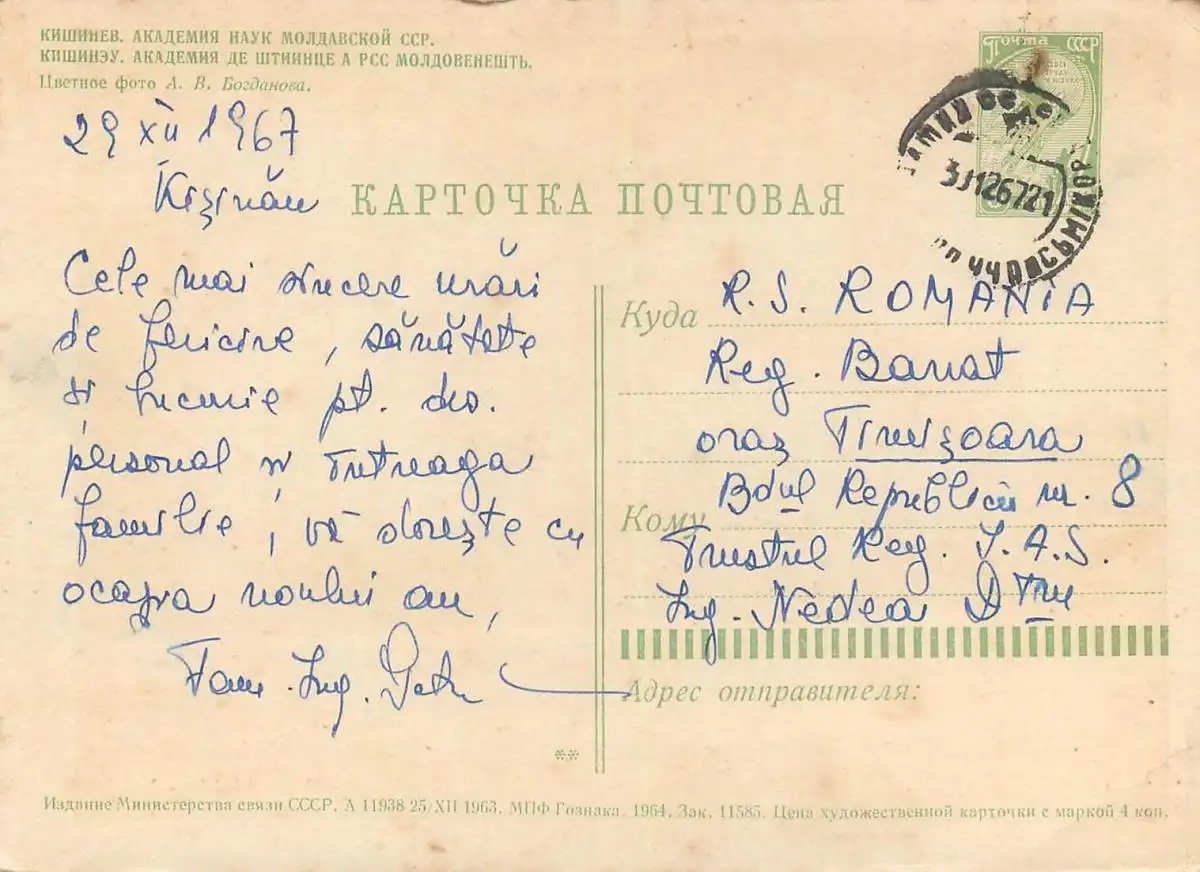 КИШИНЕВ. АКАДЕМИЯ НАУК МОЛДАВСКОЙ ССР.
КИШИНЭУ. АКАДЕМИЯ ДЕ ШТИИНЦЕ А РСС МОЛДОВЕНЕШТЬ.
Цветное фото А. В. Богданова.
ПОЧТА СССР
29 XII 1967
Kișinău
КАРТОЧКА ПОЧТОВАЯ
Cele mai sincere urări
de fericire, sănătate
și bucurie pt. dvs.
personal și întreaga
familie, vă dorește cu
ocazia noului an,
Fam. Ing.
Куда R. S. ROMANIA
Reg. Banat
oraș Timișoara
Bdul Republicii nr. 8
Кому Trustul Reg. I.A.S.
Ing. Nedea Dtru
Адрес отправителя:
Издание Министерства связи СССР. А 11938 25/XII 1963. МПФ Гознака. 1964. Зак. 11585. Цена художественной карточки с маркой 4 коп.